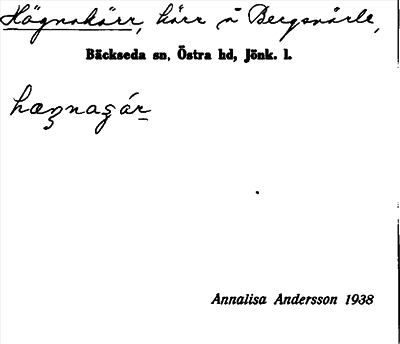 Högnakärr, kärr å Bergsnärle,
Bäckseda sn, Östra hd, Jönk. l.
Annalisa Andersson 1938